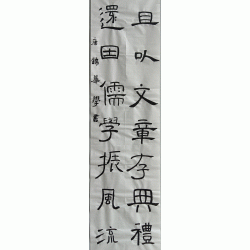 且以文章存典禮
還因儒學振風流
唐錦華學書